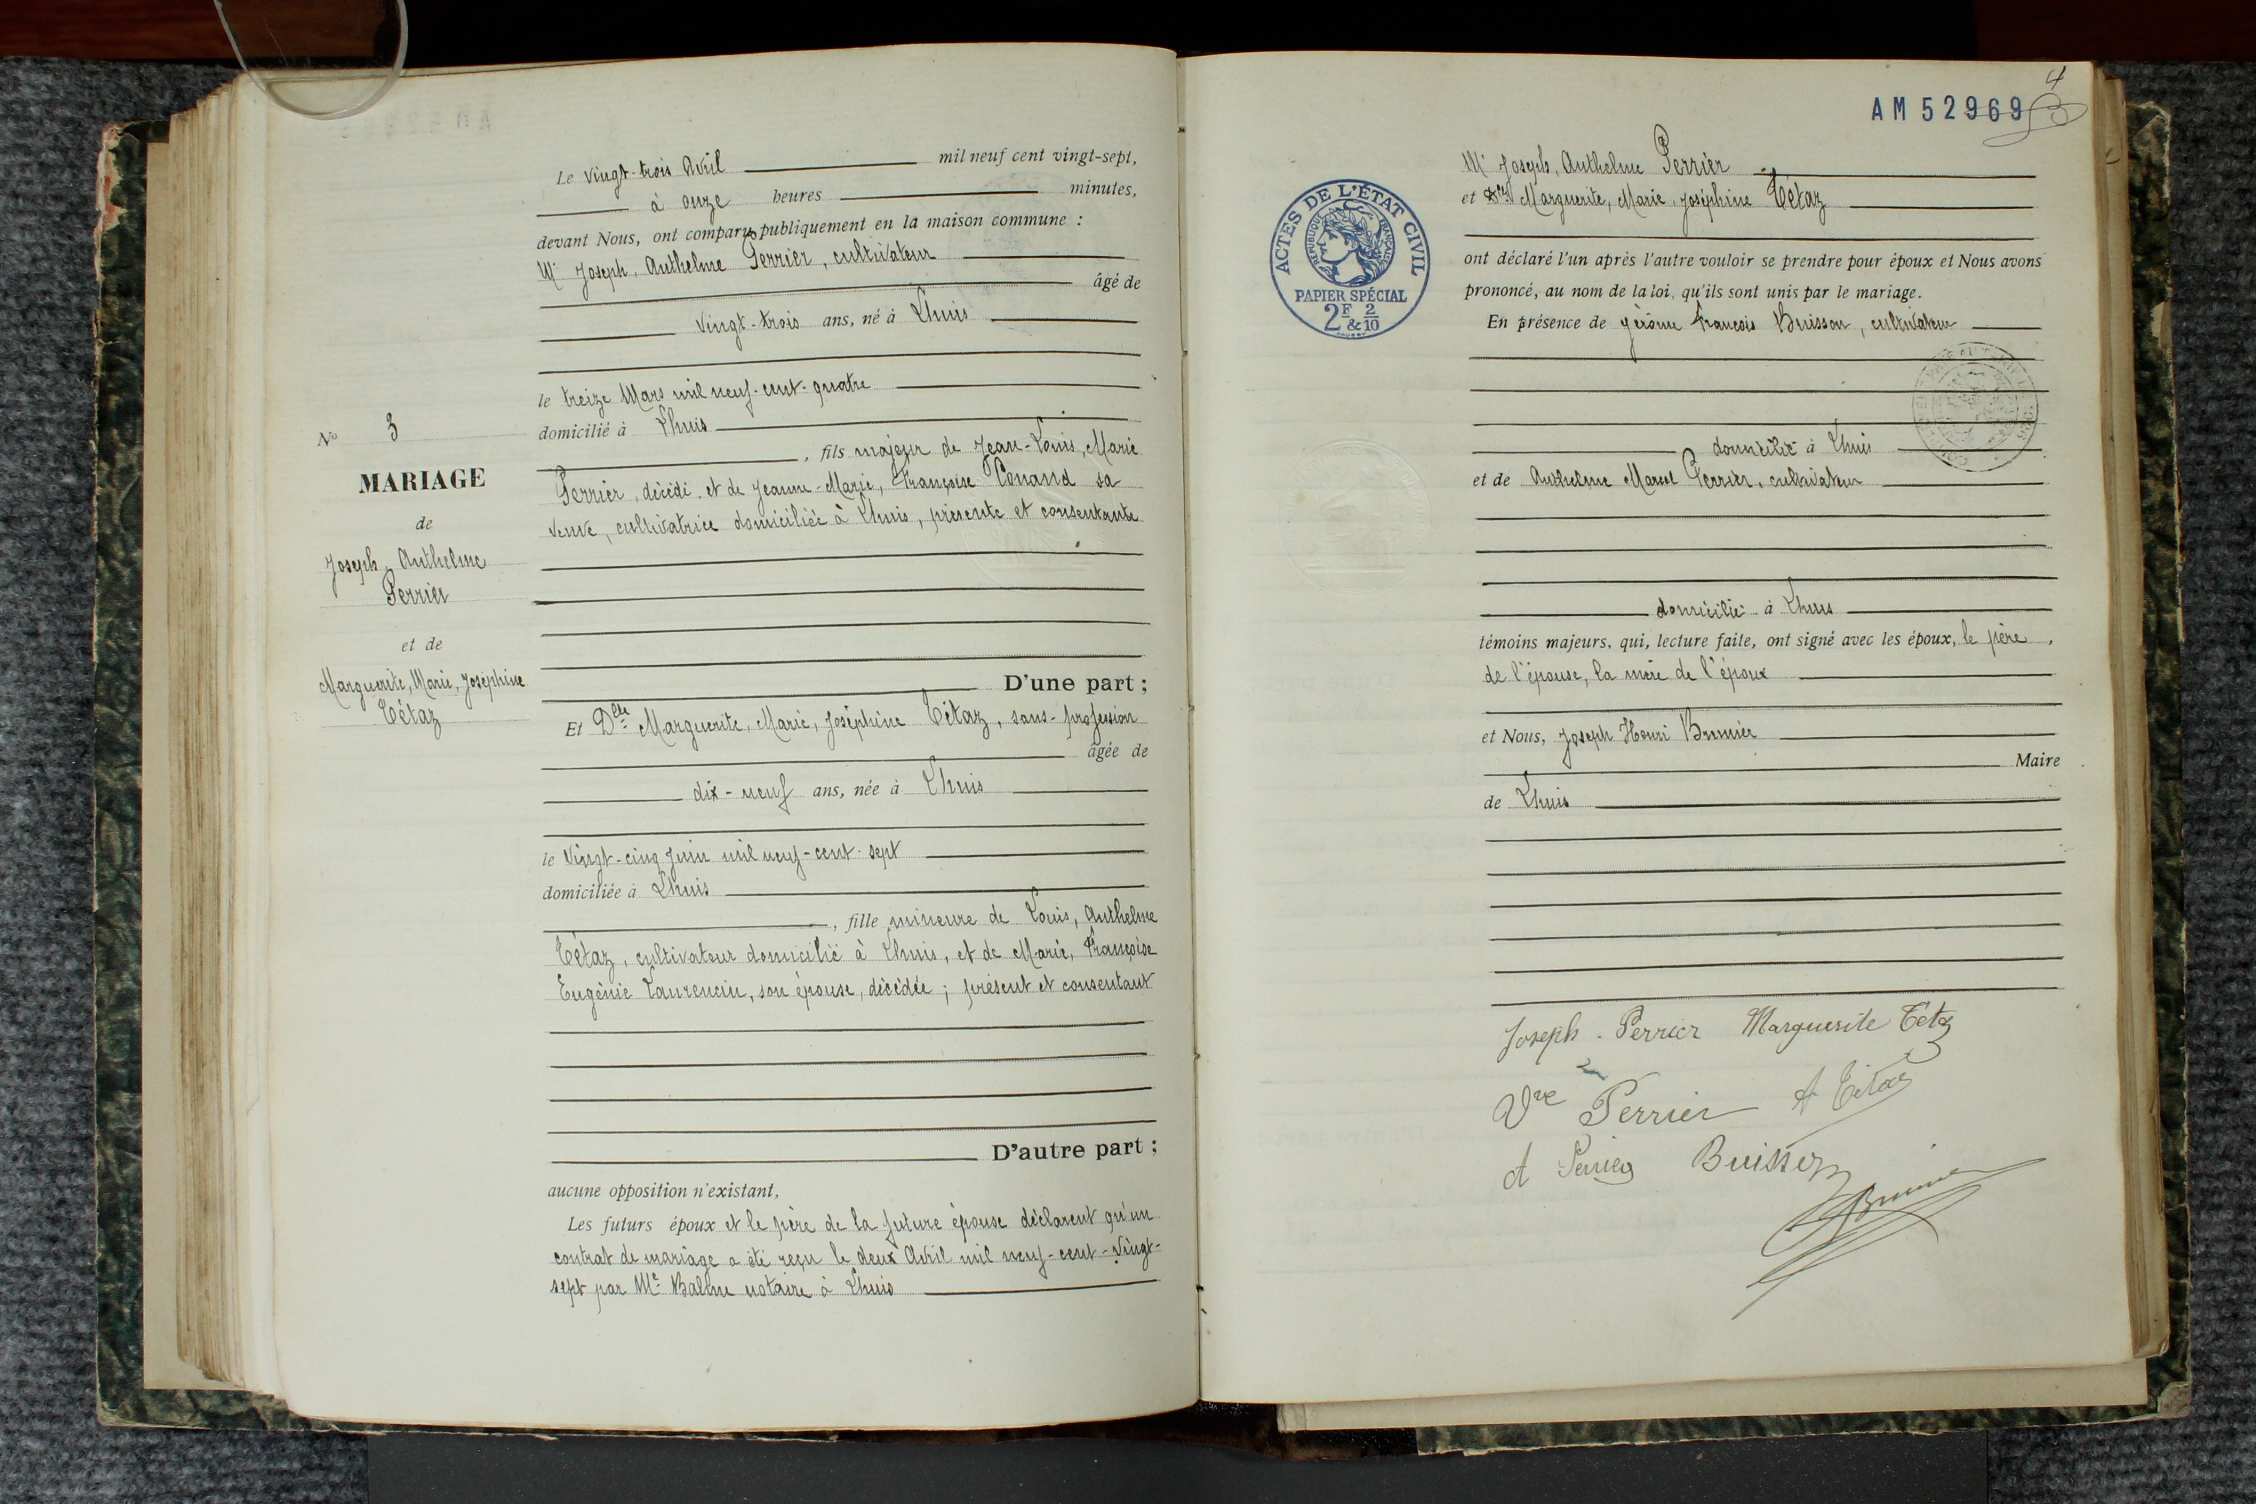 Le vingt-trois Avril mil neuf cent vingt-sept,
à onze heures minutes,
devant Nous, ont comparu publiquement en la maison commune :
Mr Joseph, Anthelme Perrier, cultivateur
âgé de
vingt-trois ans, né à Lhuis
le treize Mars mil neuf-cent-quatre
domicilié à Lhuis
, fils majeur de Jean-Louis, Marie
Perrier, décédé, et de Jeanne-Marie, Françoise Conand sa
veuve, cultivatrice domiciliée à Lhuis, présente et consentante
N° 3
MARIAGE
de
Joseph, Anthelme
Perrier
et de
Marguerite, Marie, Joséphine
Tétaz
D'une part ;
Et Dlle Marguerite, Marie, Joséphine Tétaz, sans-profession
âgée de
dix-neuf ans, née à Lhuis
le vingt-cinq Juin mil neuf-cent-sept
domiciliée à Lhuis
, fille mineure de Louis, Anthelme
Tétaz, cultivateur domicilié à Lhuis, et de Marie, Françoise
Eugénie Laurencin, son épouse, décédée ; présent et consentant
D'autre part ;
aucune opposition n'existant,
Les futurs époux et le père de la future épouse déclarent qu'un
contrat de mariage a été reçu le deux Avril mil neuf-cent-vingt-
sept par Me Balme notaire à Lhuis
4
AM 52969
ACTES DE L'ÉTAT CIVIL
RÉPUBLIQUE FRANÇAISE
PAPIER SPÉCIAL
2F & 2/10
Mr Joseph, Anthelme Perrier
et Marguerite, Marie, Joséphine Tétaz
ont déclaré l'un après l'autre vouloir se prendre pour époux et Nous avons
prononcé, au nom de la loi, qu'ils sont unis par le mariage.
En présence de Jérôme François Buisson, cultivateur
domicilié à Lhuis
et de Anthelme Marcel Perrier, cultivateur
domicilié à Lhuis
témoins majeurs, qui, lecture faite, ont signé avec les époux, le père,
de l'épouse, la mère de l'époux
et Nous, Joseph Henri Brunier
Maire
de Lhuis
Joseph Perrier Marguerite Tétaz
Vve Perrier A Tétaz
A Perrier Buisson
Brunier